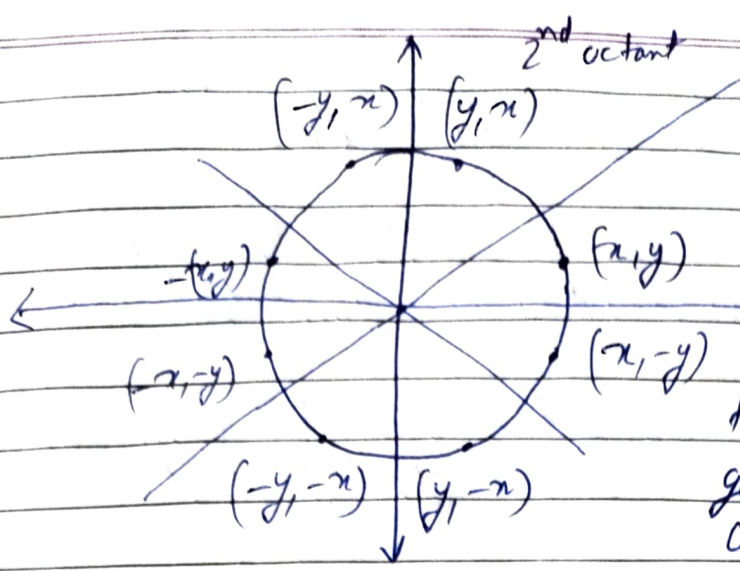 2nd octant
(-y, x) (y, x)
-(x,y) (x, y)
(-x,-y) (x, -y)
(-y, -x) (y, -x)